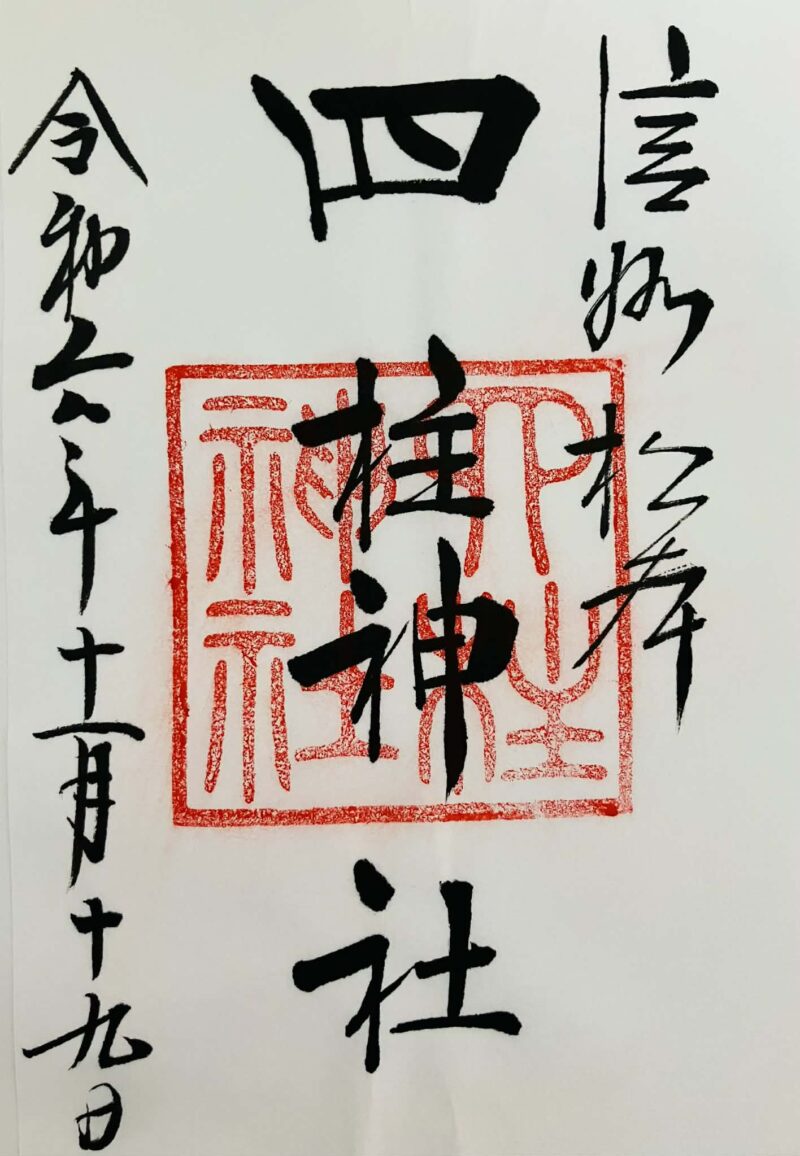 信州 松本
四柱神社
四柱神社
令和六年十一月十九日